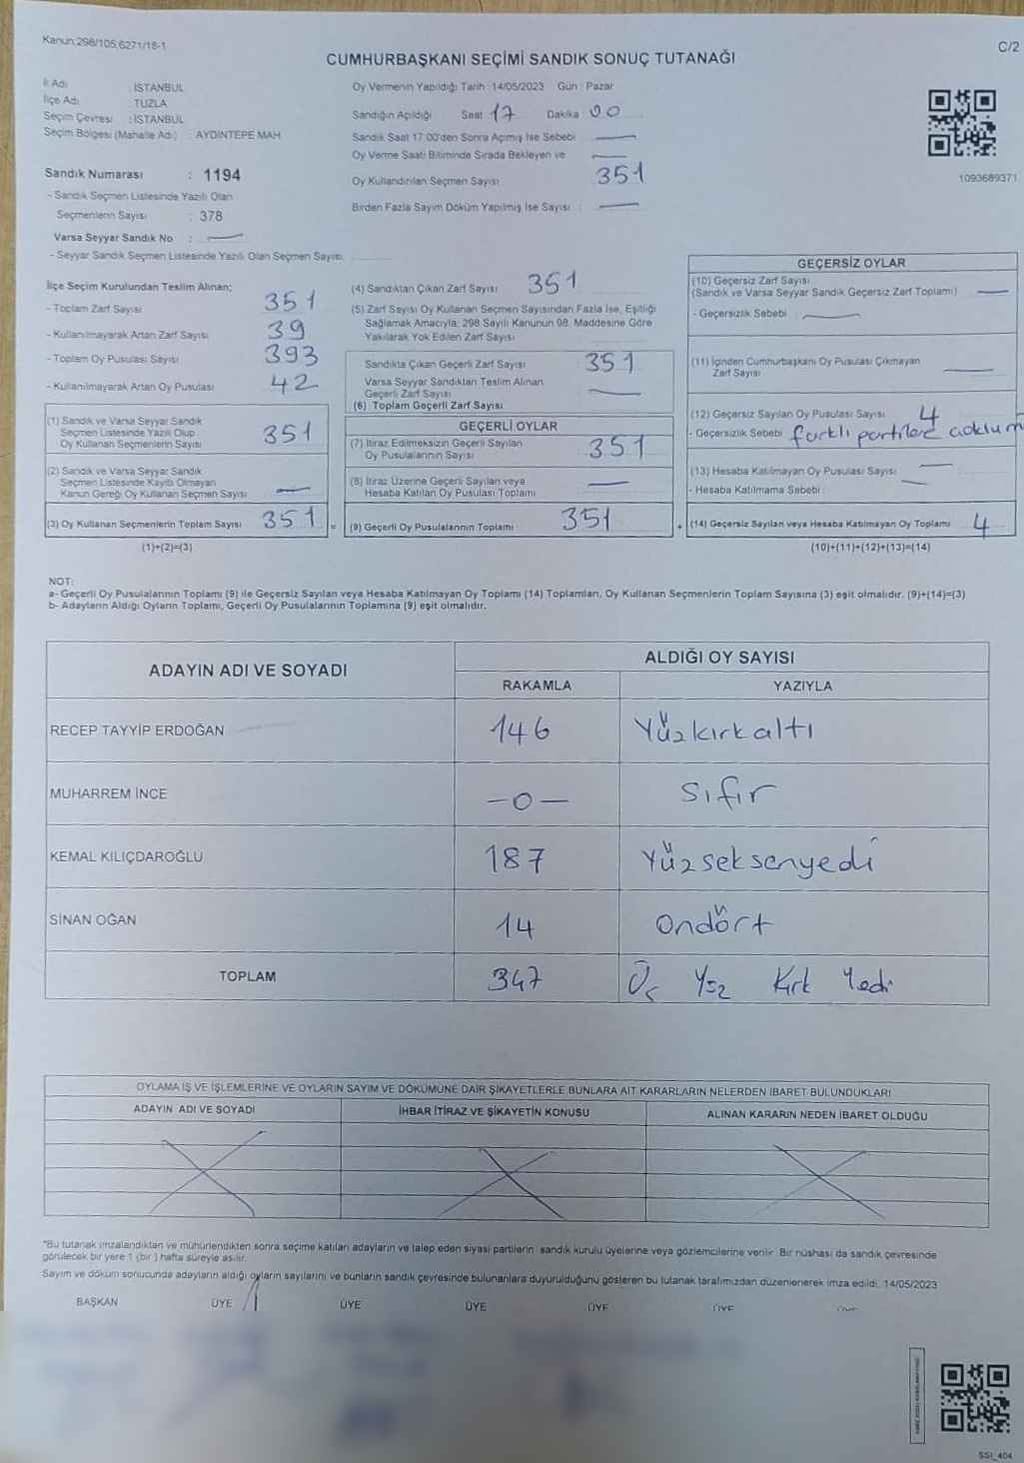 Kanun;298/105;6271/18-1
C/2
CUMHURBAŞKANI SEÇİMİ SANDIK SONUÇ TUTANAĞI
İl Adı : İSTANBUL
İlçe Adı : TUZLA
Seçim Çevresi : İSTANBUL
Seçim Bölgesi (Mahalle Adı) : AYDINTEPE MAH
Sandık Numarası : 1194
- Sandık Seçmen Listesinde Yazılı Olan
Seçmenlerin Sayısı : 378
Varsa Seyyar Sandık No : —
- Seyyar Sandık Seçmen Listesinde Yazılı Olan Seçmen Sayısı:
Oy Vermenin Yapıldığı Tarih :14/05/2023 Gün : Pazar
Sandığın Açıldığı Saat 17 Dakika 00
Sandık Saat 17:00'den Sonra Açılmış İse Sebebi —
Oy Verme Saati Bitiminde Sırada Bekleyen ve —
Oy Kullandırılan Seçmen Sayısı 351
Birden Fazla Sayım Döküm Yapılmış İse Sayısı : —
1093689371
İlçe Seçim Kurulundan Teslim Alınan;
- Toplam Zarf Sayısı 351
- Kullanılmayarak Artan Zarf Sayısı 39
- Toplam Oy Pusulası Sayısı 393
- Kullanılmayarak Artan Oy Pusulası 42
(1) Sandık ve Varsa Seyyar Sandık
Seçmen Listesinde Yazılı Olup
Oy Kullanan Seçmenlerin Sayısı 351
(2) Sandık ve Varsa Seyyar Sandık
Seçmen Listesinde Kayıtlı Olmayan
Kanun Gereği Oy Kullanan Seçmen Sayısı —
(3) Oy Kullanan Seçmenlerin Toplam Sayısı 351 =
(1)+(2)=(3)
(4) Sandıktan Çıkan Zarf Sayısı 351
(5) Zarf Sayısı Oy Kullanan Seçmen Sayısından Fazla İse, Eşitliği
Sağlamak Amacıyla; 298 Sayılı Kanunun 98. Maddesine Göre
Yakılarak Yok Edilen Zarf Sayısı
Sandıkta Çıkan Geçerli Zarf Sayısı 351
Varsa Seyyar Sandıktan Teslim Alınan
Geçerli Zarf Sayısı —
(6) Toplam Geçerli Zarf Sayısı
GEÇERLİ OYLAR
(7) İtiraz Edilmeksizin Geçerli Sayılan
Oy Pusulalarının Sayısı 351
(8) İtiraz Üzerine Geçerli Sayılan veya
Hesaba Katılan Oy Pusulası Toplamı —
(9) Geçerli Oy Pusulalarının Toplamı 351 +
GEÇERSİZ OYLAR
(10) Geçersiz Zarf Sayısı
(Sandık ve Varsa Seyyar Sandık Geçersiz Zarf Toplamı) —
- Geçersizlik Sebebi : —
(11) İçinden Cumhurbaşkanı Oy Pusulası Çıkmayan
Zarf Sayısı —
(12) Geçersiz Sayılan Oy Pusulası Sayısı 4
- Geçersizlik Sebebi farklı partilere
(13) Hesaba Katılmayan Oy Pusulası Sayısı —
- Hesaba Katılmama Sebebi : —
(14) Geçersiz Sayılan veya Hesaba Katılmayan Oy Toplamı 4
(10)+(11)+(12)+(13)=(14)
NOT:
a- Geçerli Oy Pusulalarının Toplamı (9) ile Geçersiz Sayılan veya Hesaba Katılmayan Oy Toplamı (14) Toplamları, Oy Kullanan Seçmenlerin Toplam Sayısına (3) eşit olmalıdır. (9)+(14)=(3)
b- Adayların Aldığı Oyların Toplamı, Geçerli Oy Pusulalarının Toplamına (9) eşit olmalıdır.
ADAYIN ADI VE SOYADI ALDIĞI OY SAYISI
RAKAMLA YAZIYLA
RECEP TAYYİP ERDOĞAN 146 Yüzkırkaltı
MUHARREM İNCE —0— Sıfır
KEMAL KILIÇDAROĞLU 187 Yüzseksenyedi
SİNAN OĞAN 14 Ondört
TOPLAM 347 Üç Yüz Kırk Yedi
OYLAMA İŞ VE İŞLEMLERİNE VE OYLARIN SAYIM VE DÖKÜMÜNE DAİR ŞİKAYETLERLE BUNLARA AİT KARARLARIN NELERDEN İBARET BULUNDUKLARI
ADAYIN ADI VE SOYADI İHBAR İTİRAZ VE ŞİKAYETİN KONUSU ALINAN KARARIN NEDEN İBARET OLDUĞU
"Bu tutanak imzalandıktan ve mühürlendikten sonra seçime katılan adayların ve talep eden siyasi partilerin sandık kurulu üyelerine veya gözlemcilerine verilir. Bir nüshası da sandık çevresinde
görülecek bir yere 1 (bir ) hafta süreyle asılır.
Sayım ve döküm sonucunda adayların aldığı oyların sayılarını ve bunların sandık çevresinde bulunanlara duyurulduğunu gösteren bu tutanak tarafımızdan düzenlenerek imza edildi. 14/05/2023
BAŞKAN ÜYE ÜYE ÜYE ÜYE ÜYE ÜYE
SSI_404